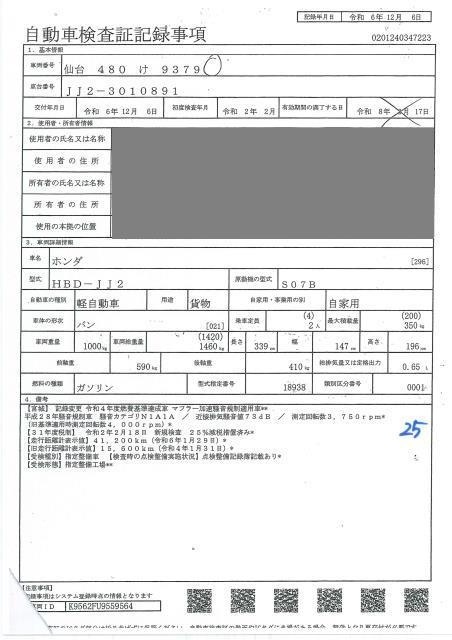 記録年月日 令和 6年12月 6日
自動車検査証記録事項
0201240347223
1. 基本情報
車両番号 仙台 480 け 9379
車台番号 JJ2-3010891
交付年月日 令和 6年12月 6日 初度検査年月 令和 2年 2月 有効期間の満了する日 令和 8年 2月 17日
2. 使用者・所有者情報
使用者の氏名又は名称
使用者の住所
所有者の氏名又は名称
所有者の住所
使用の本拠の位置
3. 車両詳細情報
車名 ホンダ [296]
型式 HBD-JJ2 原動機の型式 S07B
自動車の種別 軽自動車 用途 貨物 自家用・事業用の別 自家用
車体の形状 バン [021] 乗車定員 (4) 2人 最大積載量 (200) 350kg
車両重量 1000kg 車両総重量 (1420) 1460kg 長さ 339cm 幅 147cm 高さ 196cm
前軸重 590kg 後軸重 410kg 総排気量又は定格出力 0.65 L
燃料の種類 ガソリン 型式指定番号 18938 類別区分番号 0001
4. 備考
【宮城】 記録変更 令和4年度燃費基準達成車 マフラー加速騒音規制適用車**
平成28年騒音規制車 騒音カテゴリN1A1A / 近接排気騒音値73dB / 測定回転数3,750rpm*
(旧基準適用時測定回転数4,000rpm)*
【31年度税制】 令和2年2月18日 新規検査 25%減税措置済み*
【走行距離計表示値】41,200km(令和6年1月29日)*
【旧走行距離計表示値】15,600km(令和4年1月31日)*
【受検種別】指定整備車 【検査時の点検整備実施状況】点検整備記録簿記載あり*
【受検形態】指定整備工場**
25
【注意事項】
記録事項はシステム登録時点の情報となります
車両ID K9562FU9559564